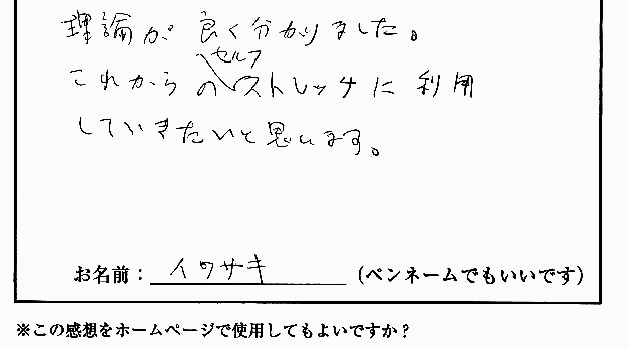 理論が良く分かりました。
これからのセルフストレッチに利用
していきたいと思います。
お名前：イワサキ（ペンネームでもいいです）
※この感想をホームページで使用してもよいですか？